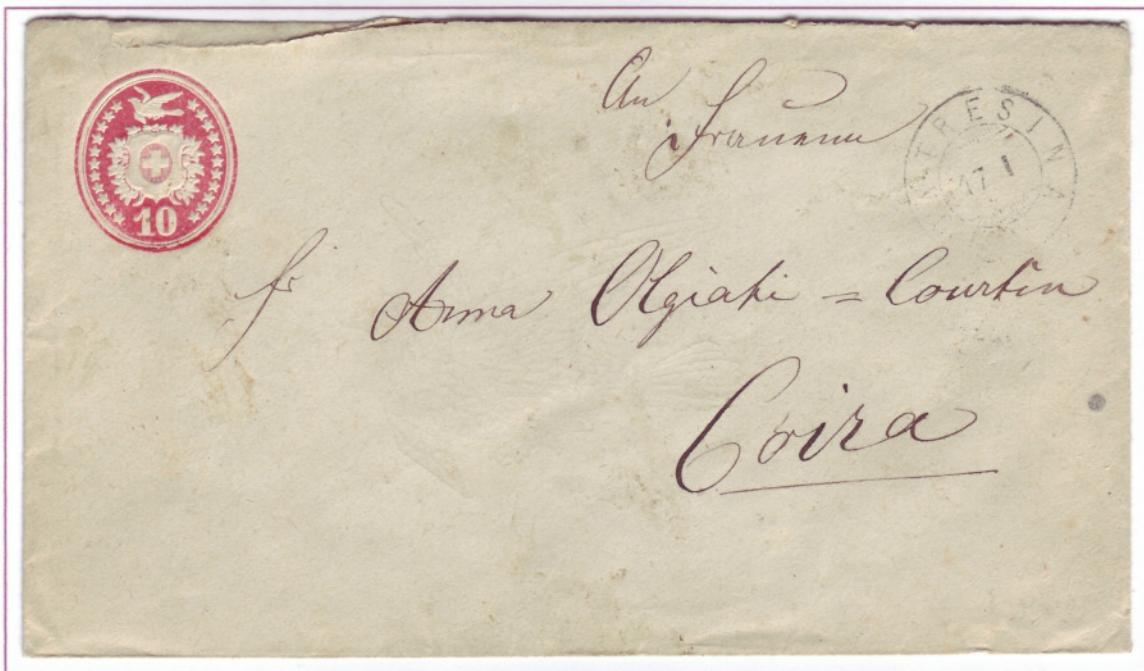 10
An
Frauenn
TRESINA
17 I
fr Anna Olgiati = Courtin
Coira